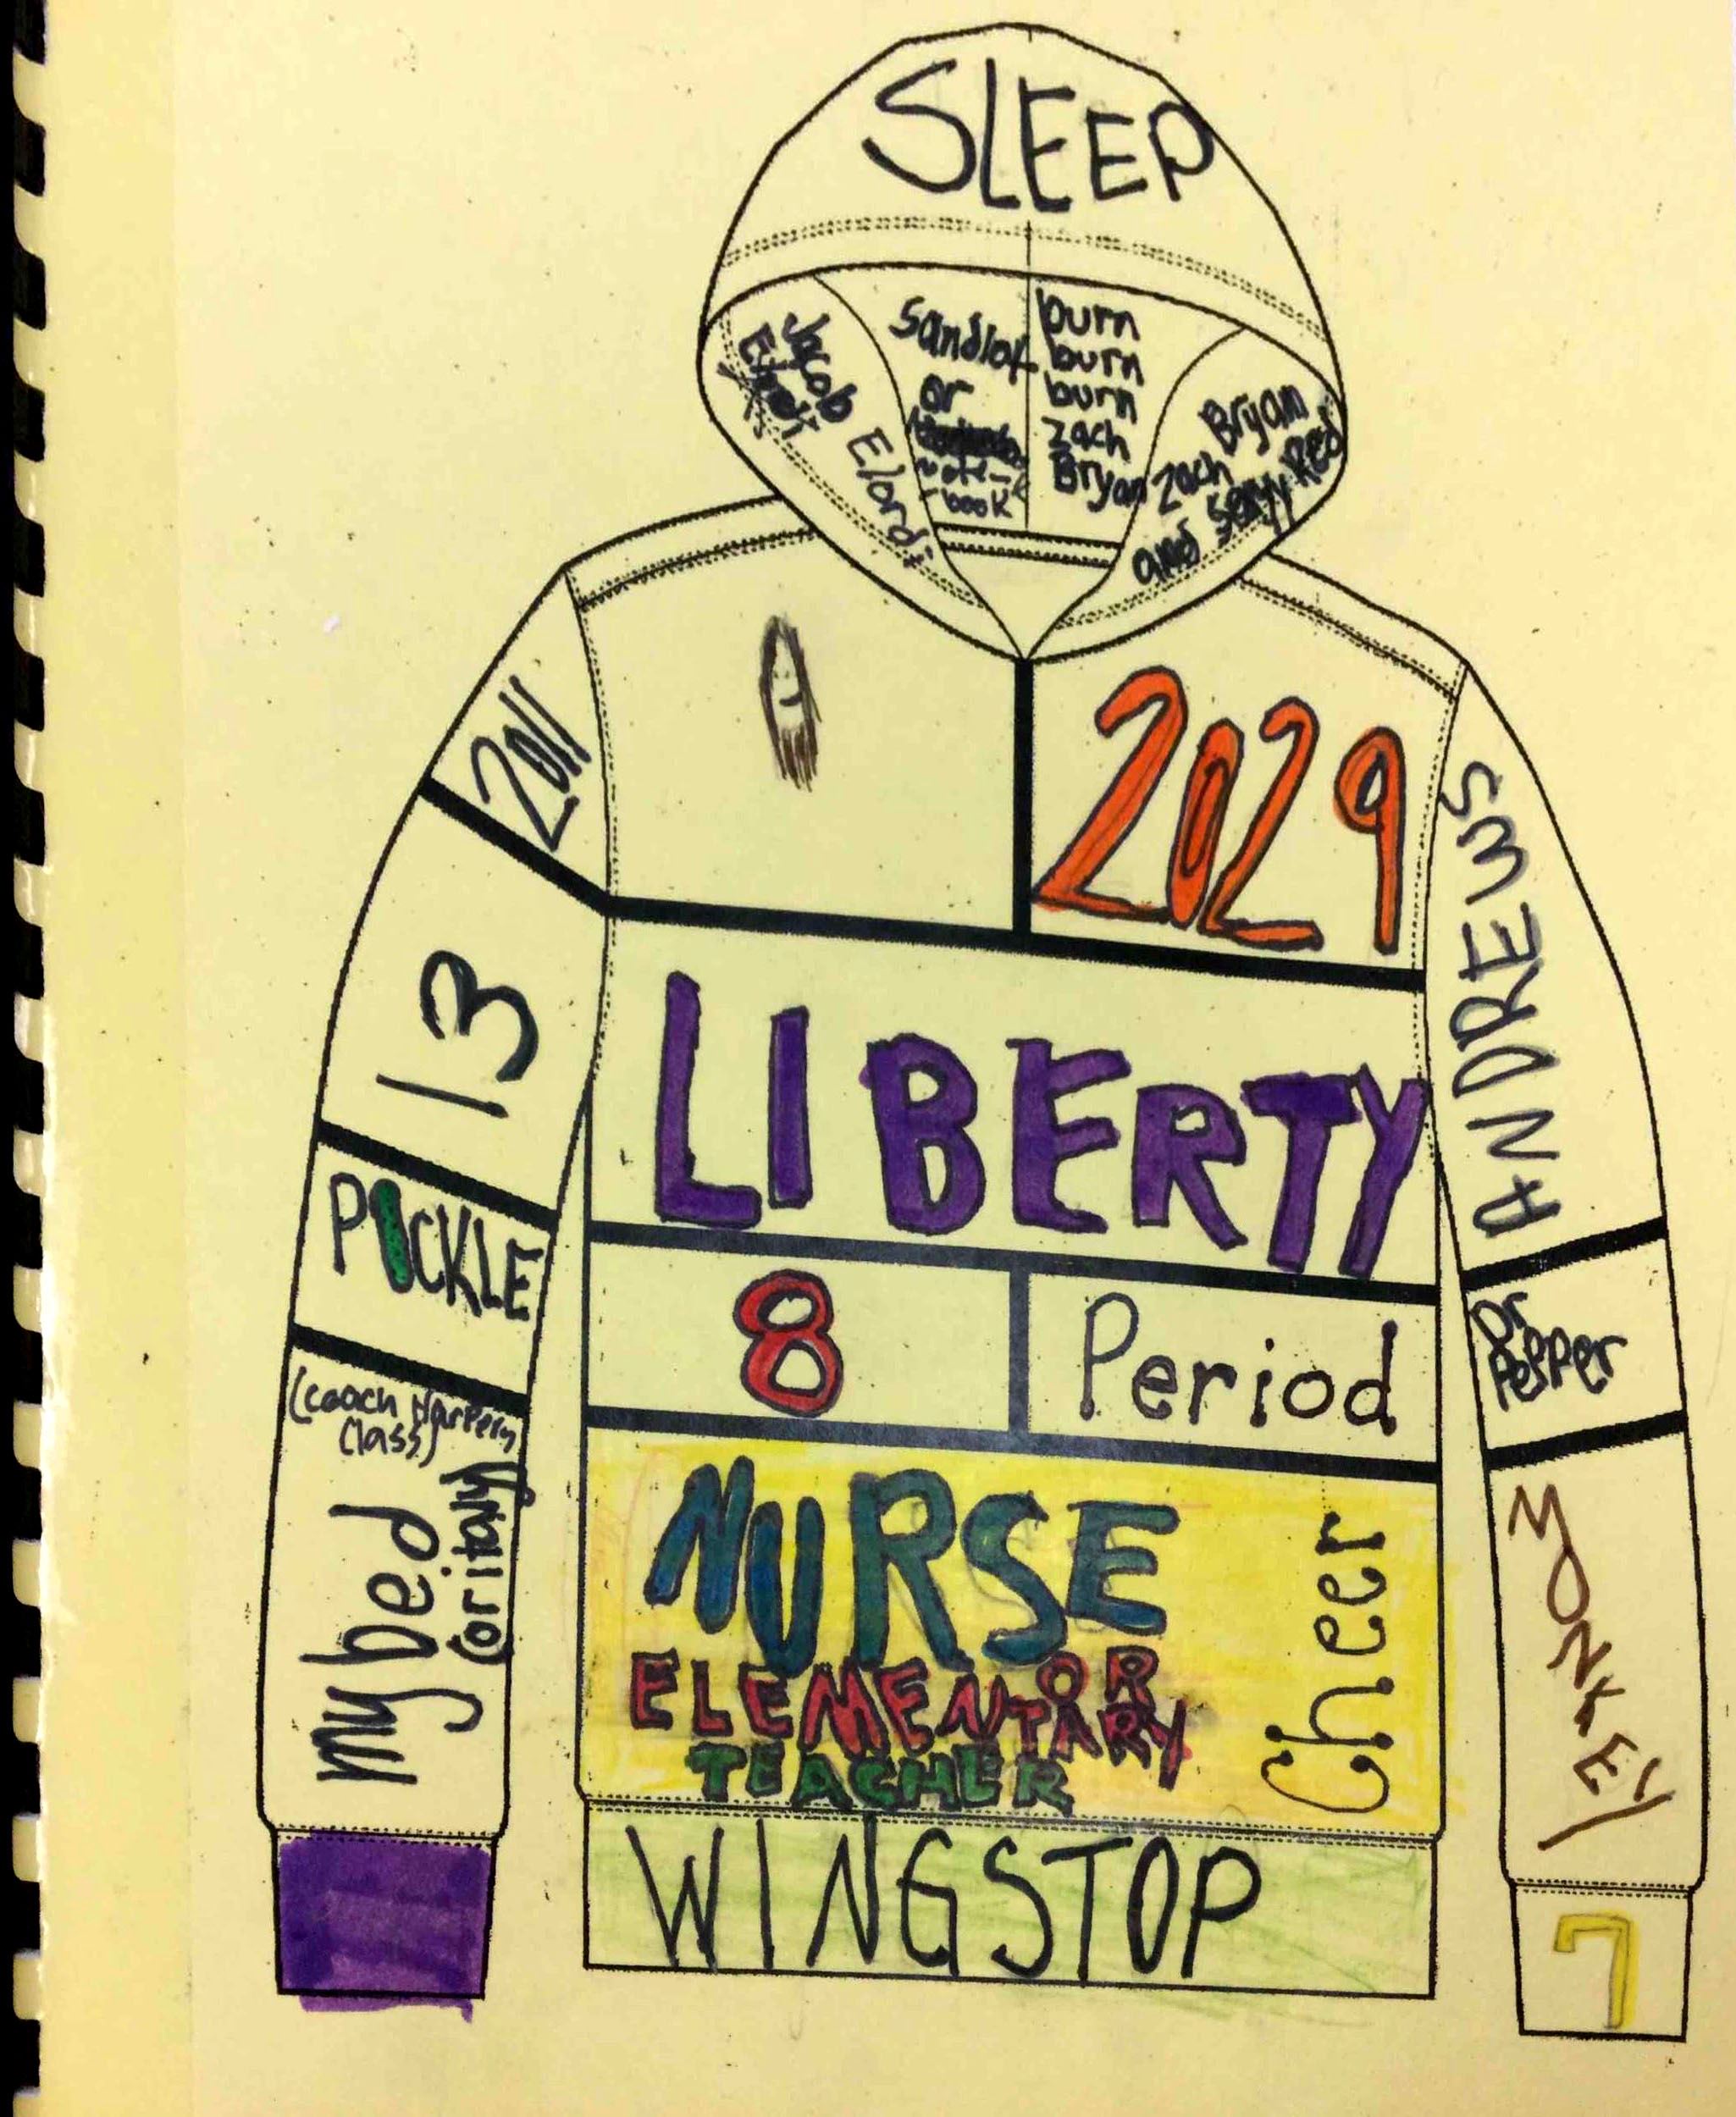 SLEEP
Jacob
Elordi
Sandlot
or
note-
-book
burn
burn
burn
Zach
Bryan
Zach
Bryan
and sexyy Red
2011
2029
ANDREWS
13
LIBERTY
PICKLE
8
Period
Dr
Pepper
(coach Harpers
Class)
my bed
(or italy)
NURSE
OR
ELEMENTARY
TEACHER
Cheer
MONKEY
WINGSTOP
7